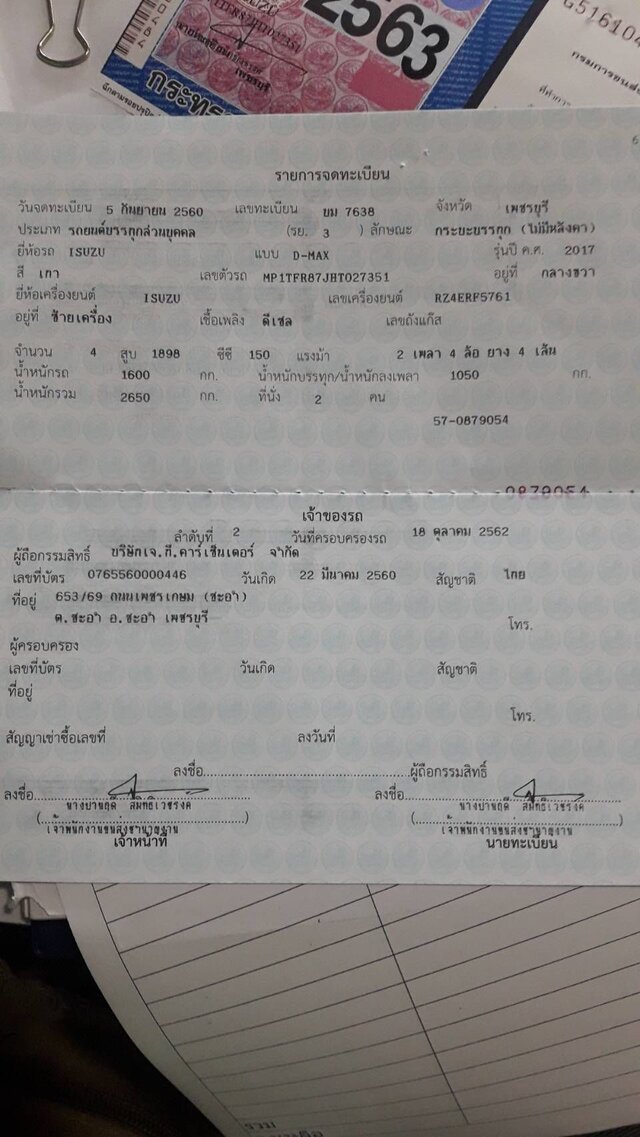 2563
กระทร
G51610
กรมการขนส่
รายการจดทะเบียน
วันจดทะเบียน 5 กันยายน 2560 เลขทะเบียน ขม 7638 จังหวัด เพชรบุรี
ประเภท รถยนต์บรรทุกส่วนบุคคล (รย. 3 ) ลักษณะ กระบะบรรทุก (ไม่มีหลังคา)
ยี่ห้อรถ ISUZU แบบ D-MAX รุ่นปี ค.ศ. 2017
สี เทา เลขตัวรถ MP1TFR87JHT027351 อยู่ที่ กลางขวา
ยี่ห้อเครื่องยนต์ ISUZU เลขเครื่องยนต์ RZ4ERF5761
อยู่ที่ ซ้ายเครื่อง เชื้อเพลิง ดีเซล เลขถังแก๊ส
จำนวน 4 สูบ 1898 ซีซี 150 แรงม้า 2 เพลา 4 ล้อ ยาง 4 เส้น
น้ำหนักรถ 1600 กก. น้ำหนักบรรทุก/น้ำหนักลงเพลา 1050 กก.
น้ำหนักรวม 2650 กก. ที่นั่ง 2 คน
57-0879054
0879054
เจ้าของรถ
ลำดับที่ 2 วันที่ครอบครองรถ 18 ตุลาคม 2562
ผู้ถือกรรมสิทธิ์ บริษัทเจ.ที.คาร์เซ็นเตอร์ จำกัด
เลขที่บัตร 0765560000446 วันเกิด 22 มีนาคม 2560 สัญชาติ ไทย
ที่อยู่ 653/69 ถนนเพชรเกษม (ชะอำ)
ต.ชะอำ อ.ชะอำ เพชรบุรี
โทร.
ผู้ครอบครอง
เลขที่บัตร วันเกิด สัญชาติ
ที่อยู่
โทร.
สัญญาเช่าซื้อเลขที่ ลงวันที่
ลงชื่อ ผู้ถือกรรมสิทธิ์
ลงชื่อ ลงชื่อ
เจ้าพนักงานขนส่งชำนาญงาน เจ้าพนักงานขนส่งชำนาญงาน
เจ้าหน้าที่ นายทะเบียน
รวม